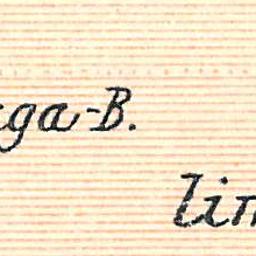 ga-B.
lin